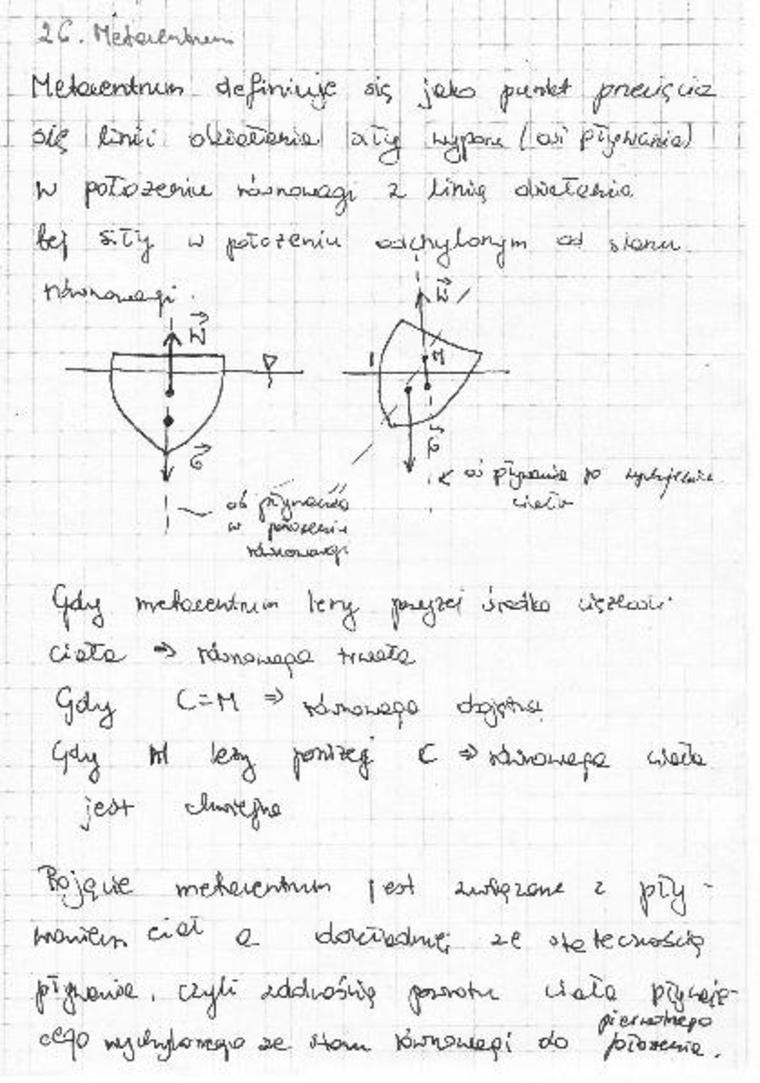 26. Metacentrum
Metacentrum definiuje się jako punkt przecięcia
się linii działania siły wyporu (osi pływania)
w położeniu równowagi z linią działania
tej siły w położeniu odchylonym od stanu
równowagi.
W
W
M
G
G
oś pływania po wychyleniu
ciała
oś pływania
w położeniu
równowagi
Gdy metacentrum leży powyżej środka ciężkości
ciała ⇒ równowaga trwała
Gdy C=M ⇒ równowaga obojętna
Gdy M leży poniżej C ⇒ równowaga ciała
jest chwiejna
Pojęcie metacentrum jest związane z pły-
waniem ciał a dokładniej ze statecznością
pływania, czyli zdolnością powrotu ciała pływają-
cego wychylonego ze stanu równowagi do pierwotnego
położenia.